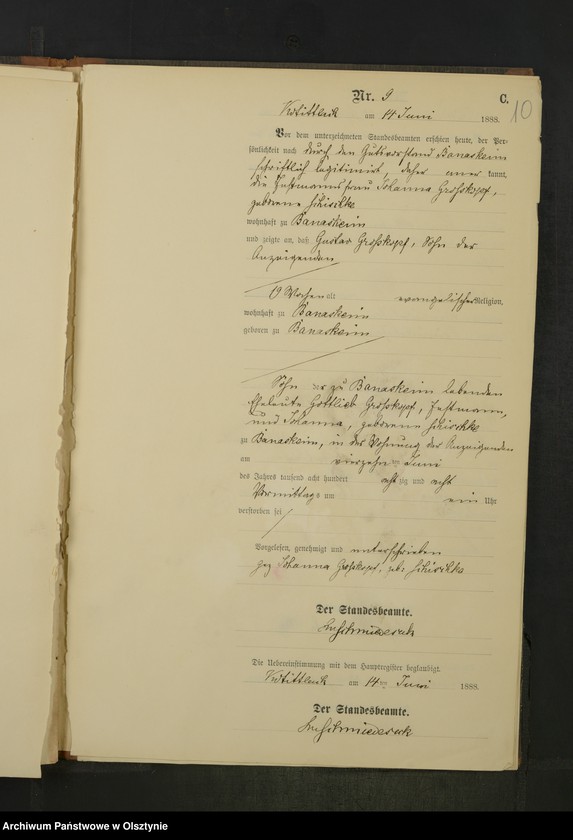 Nr. 9 C.
10
am 14 Juni 1888.
Vor dem unterzeichneten Standesbeamten erschien heute, der Per-
sönlichkeit nach durch den Gutsvorstand Banaskeim
schriftlich legitimirt, daher aner kannt,
die Instmannsfrau Johanna Großkopf,
geborene
wohnhaft zu Banaskeim
und zeigte an, daß Gustav Großkopf, Sohn der
Anzeigenden
19 Wochen alt evangelischer Religion,
wohnhaft zu Banaskeim
geboren zu Banaskeim
Sohn der zu Banaskeim lebenden
Eheleute Gottlieb Großkopf, Instmann,
und Johanna, geborene
zu Banaskeim, in der Wohnung der Anzeigenden
am vierzehn ten Juni
des Jahres tausend acht hundert acht zig und acht
Vormittags um ein Uhr
verstorben sei
Vorgelesen, genehmigt und unterschrieben
gez Johanna Großkopf, geb:
Der Standesbeamte.
Die Uebereinstimmung mit dem Hauptregister beglaubigt.
am 14ten Juni 1888.
Der Standesbeamte.
Archiwum Państwowe w Olsztynie